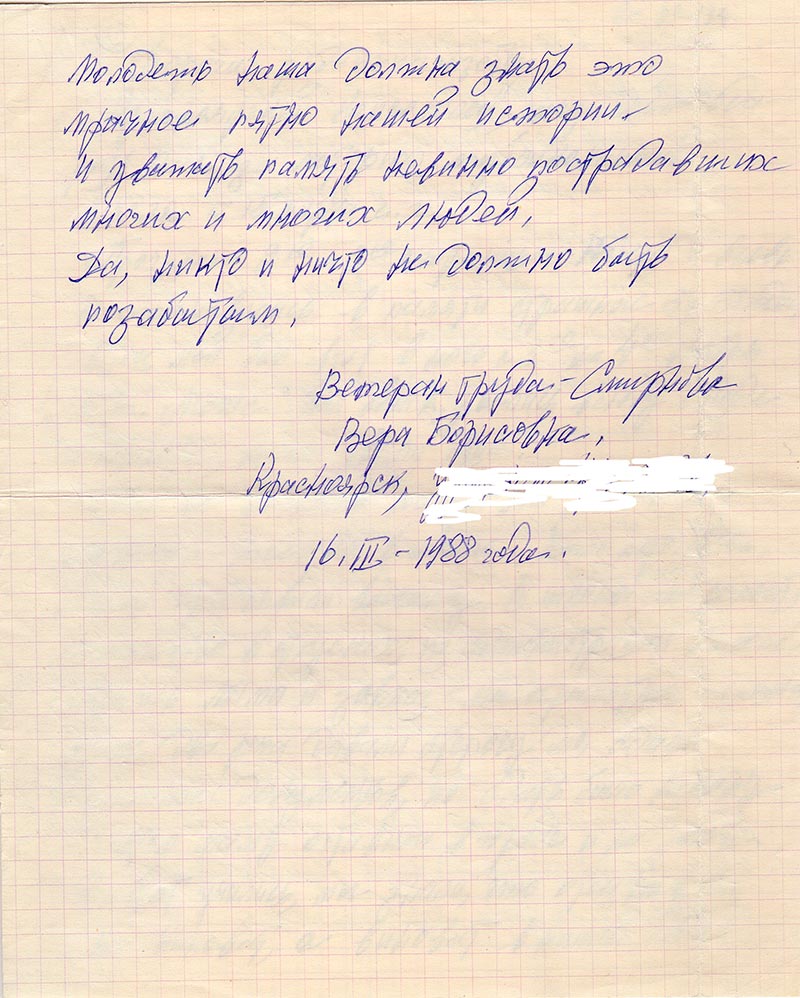 Молодежь наша должна знать это
мрачное пятно нашей истории.
и уважать память невинно пострадавших
многих и многих людей.
Да, никто и ничто не должно быть
позабытым.
Ветеран труда - Смирнова
Вера Борисовна.
Красноярск,
16. III - 1988 года.